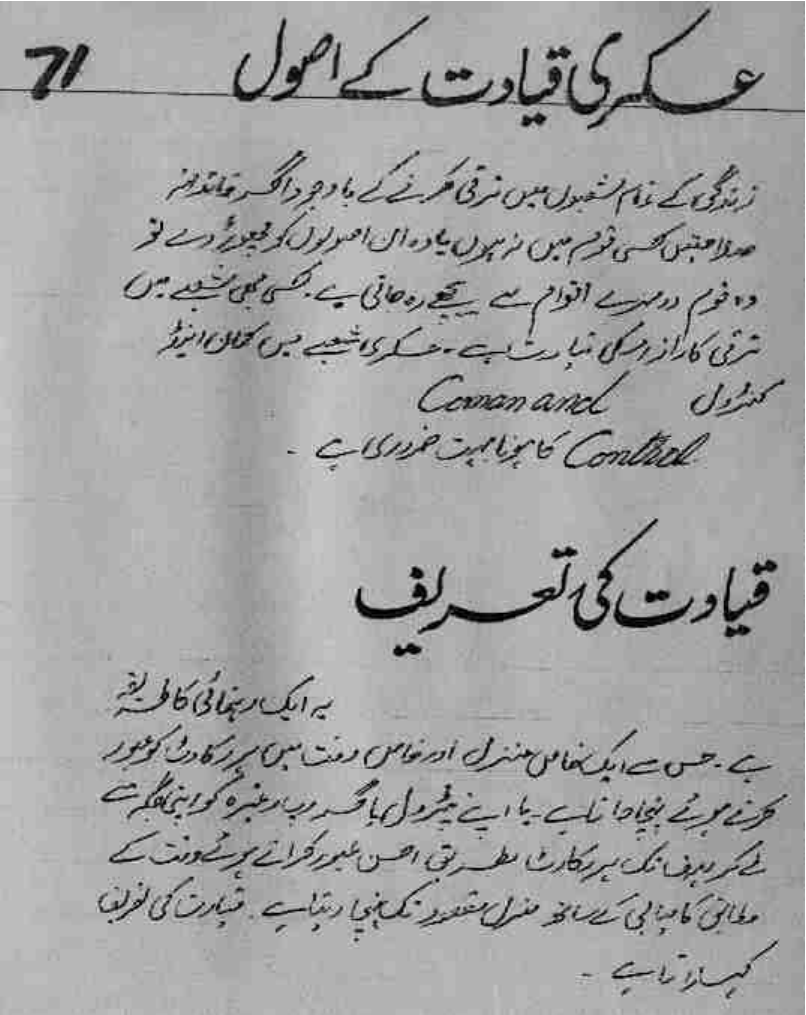 71
عسکری قیادت کے اصول
زندگی کے تمام شعبوں میں ترقی کرنے کے باوجود اگر قائدانہ
صلاحیتیں کسی قوم میں نہ ہوں یا وہ ان اصولوں کو چھوڑ دے تو
وہ قوم دوسرے اقوام سے پیچھے رہ جاتی ہے۔ کسی بھی شعبے میں
ترقی کا راز اسکی قیادت ہے۔ عسکری شعبے میں کمان اینڈ
کنٹرول Coman and
Control کا ہونا بہت ضروری ہے۔
قیادت کی تعریف
یہ ایک رہنمائی کا طریقہ
ہے۔ جس سے ایک خاص منزل اور خاص وقت میں ہر رکاوٹ کو عبور
کرتے ہوئے پہنچا جاتا ہے۔ یا اپنے پٹرول یا گروپ وغیرہ کو اپنی جگہ سے
لے کر ہدف تک ہر رکاوٹ بطریق احسن عبور کراتے ہوئے وقت کے
مطابق کامیابی کے ساتھ منزل مقصود تک پہنچا دیتا ہے۔ قیادت کی تعریف
کہلاتا ہے۔